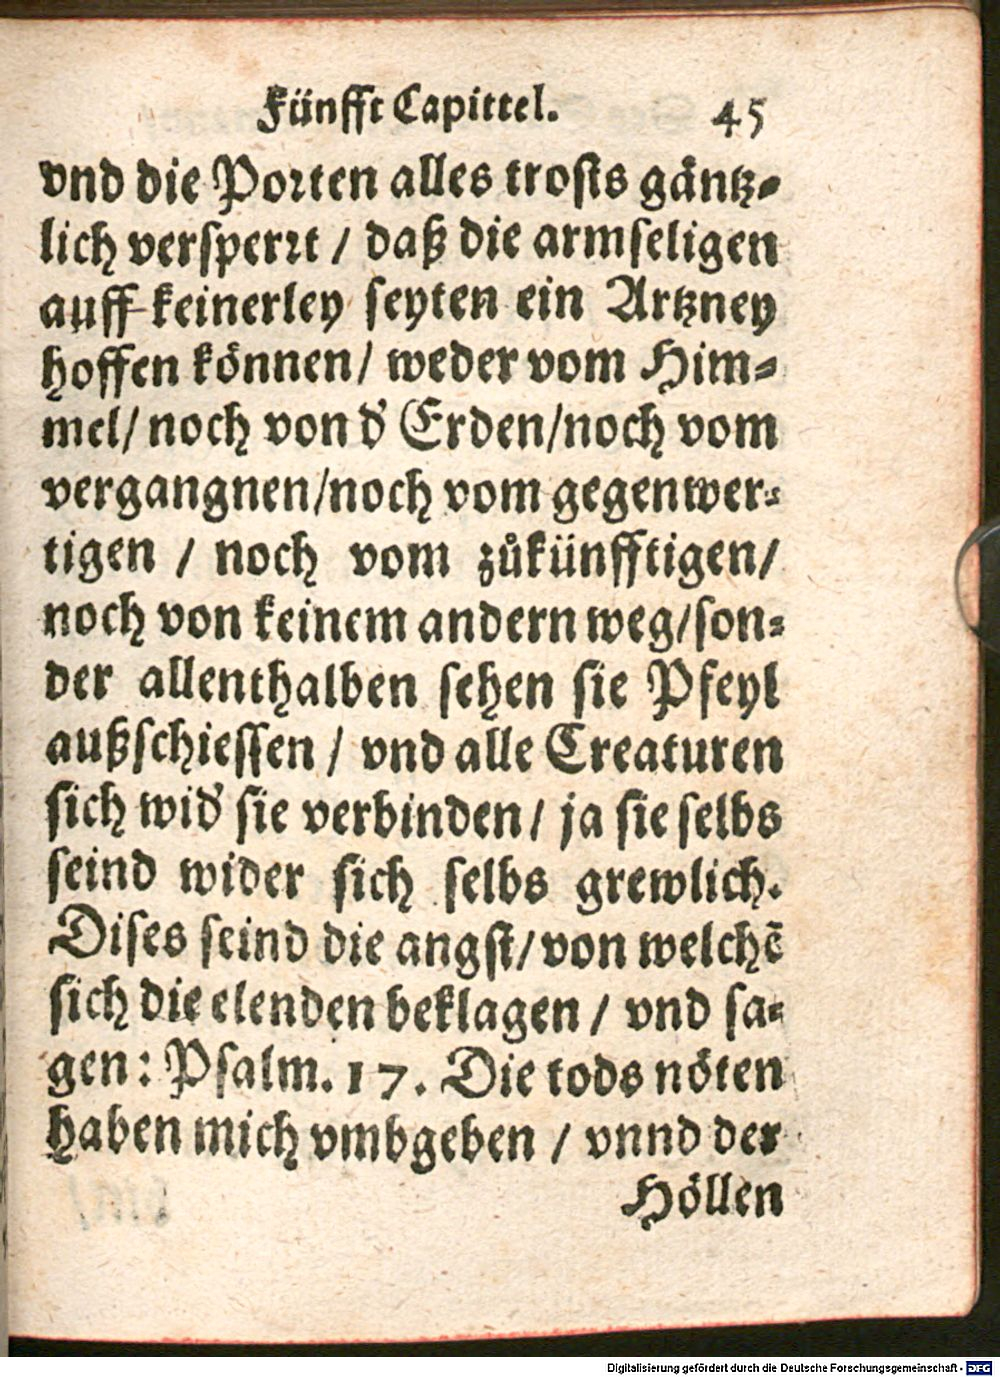 Fünfft Capittel. 45
vnd die Porten alles trosts gäntz-
lich versperrt / daß die armseligen
auff keinerley seyten ein Artzney
hoffen können / weder vom Him-
mel / noch von d' Erden / noch vom
vergangnen / noch vom gegenwer-
tigen / noch vom zůkünfftigen /
noch von keinem andern weg / son-
der allenthalben sehen sie Pfeyl
außschiessen / vnd alle Creaturen
sich wid' sie verbinden / ja sie selbs
seind wider sich selbs grewlich.
Dises seind die angst / von welchẽ
sich die elenden beklagen / vnd sa-
gen: Psalm. 17. Die tods nöten
haben mich vmbgeben / vnnd der
Höllen
Digitalisierung gefördert durch die Deutsche Forschungsgemeinschaft - DFG